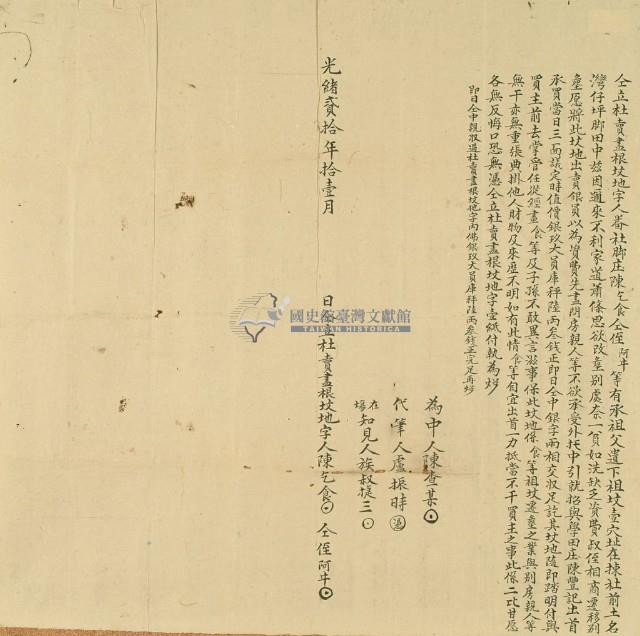 仝立杜賣盡根坟地字人番社脚庄陳乞食仝侄阿牛等有承祖父遺下祖坟壹穴址在㨂社前土名
灣仔坪脚田中玆因邇來不利家道蕭條思欲改𦵏別處奈一貧如洗缺乏資費叔侄相商遷移別
𦵏愿將此坟地出賣銀員以為資費先盡問房親人等不欲承受外托中引就招與學田庄陳豐記出首
承買當日三面議定時值價銀玖大員庫秤陸両叁錢正即日仝中銀字両相交收足訖其坟地隨即踏明付與
買主前去掌管任從經畫食等及子孫不敢異言滋事保此坟地係食等祖坟遷𦵏之業與別房親人等
無干亦無重張典掛他人財物及來歷不明如有此情食等自宜出首一力抵當不干買主之事此係二比甘愿
各無反悔口恐無憑仝立杜賣盡根坟地字壹紙付執為炤
即日仝中親收過杜賣盡根坟地字內佛銀玖大員庫秤陸両叁錢正完足再炤
為中人陳查某
代筆人盧振時
在場知見人族叔提三
光緒貳拾年拾壹月 日仝立杜賣盡根坟地字人陳乞食 仝侄阿牛
國史館臺灣文獻館
TAIWAN HISTORICA